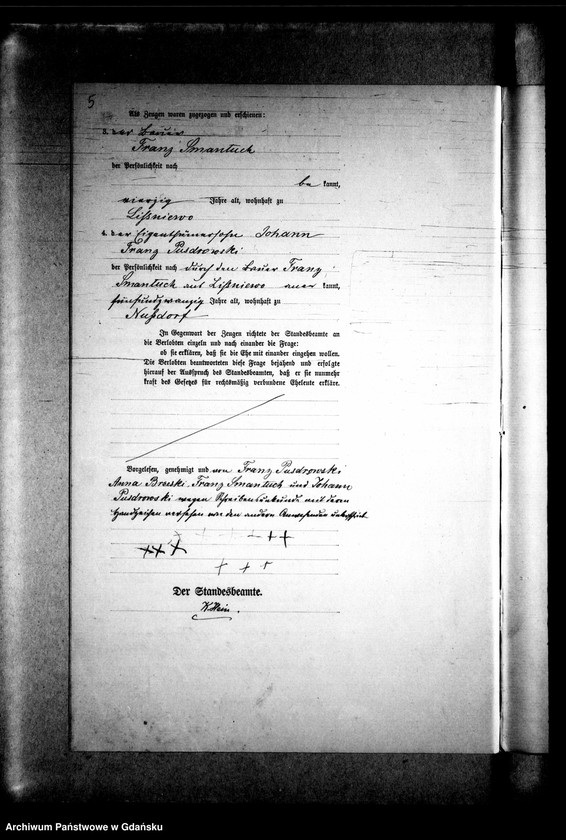 5
Als Zeugen waren zugezogen und erschienen:
3. der Bauer
Franz Smantuch
der Persönlichkeit nach
be kannt,
vierzig Jahre alt, wohnhaft zu
Lißniewo
4. der Eigenthümersohn Johann
Franz Pusdrowski
der Persönlichkeit nach durch den Bauer Franz
Smantuch aus Lißniewo aner kannt,
fünfundzwanzig Jahre alt, wohnhaft zu
Nußdorf
In Gegenwart der Zeugen richtete der Standesbeamte an
die Verlobten einzeln und nach einander die Frage:
ob sie erklären, daß sie die Ehe mit einander eingehen wollen.
Die Verlobten beantworteten diese Frage bejahend und erfolgte
hierauf der Ausspruch des Standesbeamten, daß er sie nunmehr
kraft des Gesetzes für rechtsmäßig verbundene Eheleute erkläre.
Vorgelesen, genehmigt und von Franz Pusdrowski
Anna Breski, Franz Smantuch und Johann
Pusdrowski wegen Schreibensunkunde mit ihren
Handzeichen versehen
+ + + + + +
+++
+ + +
Der Standesbeamte.
Archiwum Państwowe w Gdańsku